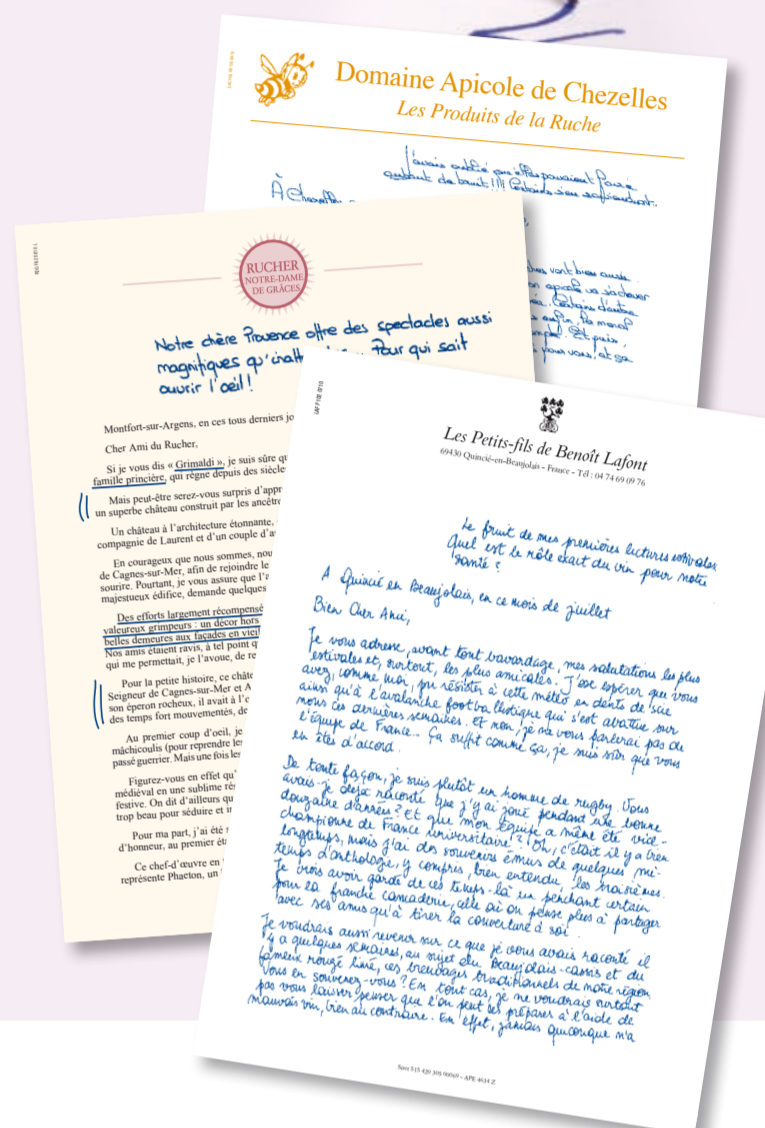 Domaine Apicole de Chezelles
Les Produits de la Ruche
J'avais oublié qu'elles pouvaient faire
autant de bruit !!!
À Chezelles
vont bien aussi.
apicole va s'achever
Et puis,
pour vous, et sa
RUCHER
NOTRE-DAME
DE GRÂCES
Notre chère Provence offre des spectacles aussi
magnifiques qu'inatt Pour qui sait
ouvrir l'œil !
Montfort-sur-Argens, en ces tous derniers jo
Cher Ami du Rucher,
Si je vous dis « Grimaldi », je suis sûre qu
famille princière, qui règne depuis des siècle
Mais peut-être serez-vous surpris d'appr
un superbe château construit par les ancêtr
Un château à l'architecture étonnante,
compagnie de Laurent et d'un couple d'a
En courageux que nous sommes, nou
de Cagnes-sur-Mer, afin de rejoindre le
sourire. Pourtant, je vous assure que l'a
majestueux édifice, demande quelques
Des efforts largement récompensé
valeureux grimpeurs : un décor hors
belles demeures aux façades en vieil
Nos amis étaient ravis, à tel point q
qui me permettait, je l'avoue, de re
Pour la petite histoire, ce châte
Seigneur de Cagnes-sur-Mer et A
son éperon rocheux, il avait à l'o
des temps fort mouvementés, de
Au premier coup d'oeil, je
mâchicoulis (pour reprendre les
passé guerrier. Mais une fois les
Figurez-vous en effet qu'
médiéval en une sublime rés
festive. On dit d'ailleurs qu
trop beau pour séduire et i
Pour ma part, j'ai été s
d'honneur, au premier éta
Ce chef-d'œuvre en
représente Phaeton, un
Les Petits-fils de Benoît Lafont
69430 Quincié-en-Beaujolais - France - Tél : 04 74 69 09 76
Le fruit de mes premières lectures estivales
Quel est le rôle exact du vin pour notre
santé ?
A Quincié en Beaujolais, en ce mois de juillet
Bien Cher Ami,
Je vous adresse, avant tout bavardage, mes salutations les plus
estivales et, surtout, les plus amicales. J'ose espérer que vous
avez, comme moi, pu résister à cette météo en dents de scie
ainsi qu'à l'avalanche footballistique qui s'est abattue sur
nous ces dernières semaines. Et non, je ne vous parlerai pas de
l'équipe de France... Ça suffit comme ça, je suis sûr que vous
en êtes d'accord.
De toute façon, je suis plutôt un homme de rugby. Vous
avais-je déjà raconté que j'y ai joué pendant une bonne
douzaine d'années ? Et que mon équipe a même été vice-
championne de France universitaire ? Oh, c'était il y a bien
longtemps, mais j'ai des souvenirs émus de quelques mi-
temps d'anthologie, y compris, bien entendu, les troisièmes.
Je crois avoir gardé de ces temps-là un penchant certain
pour la franche camaraderie, celle où on pense plus à partager
avec ses amis qu'à tirer la couverture à soi.
Je voudrais aussi revenir sur ce que je vous avais raconté il
y a quelques semaines, au sujet du Beaujolais-cassis et du
fameux rouge limé, ces breuvages traditionnels de notre région.
Vous en souvenez-vous ? En tout cas, je ne voudrais surtout
pas vous laisser penser que l'on peut les préparer à l'aide de
mauvais vin, bien au contraire. En effet, jamais quiconque m'a